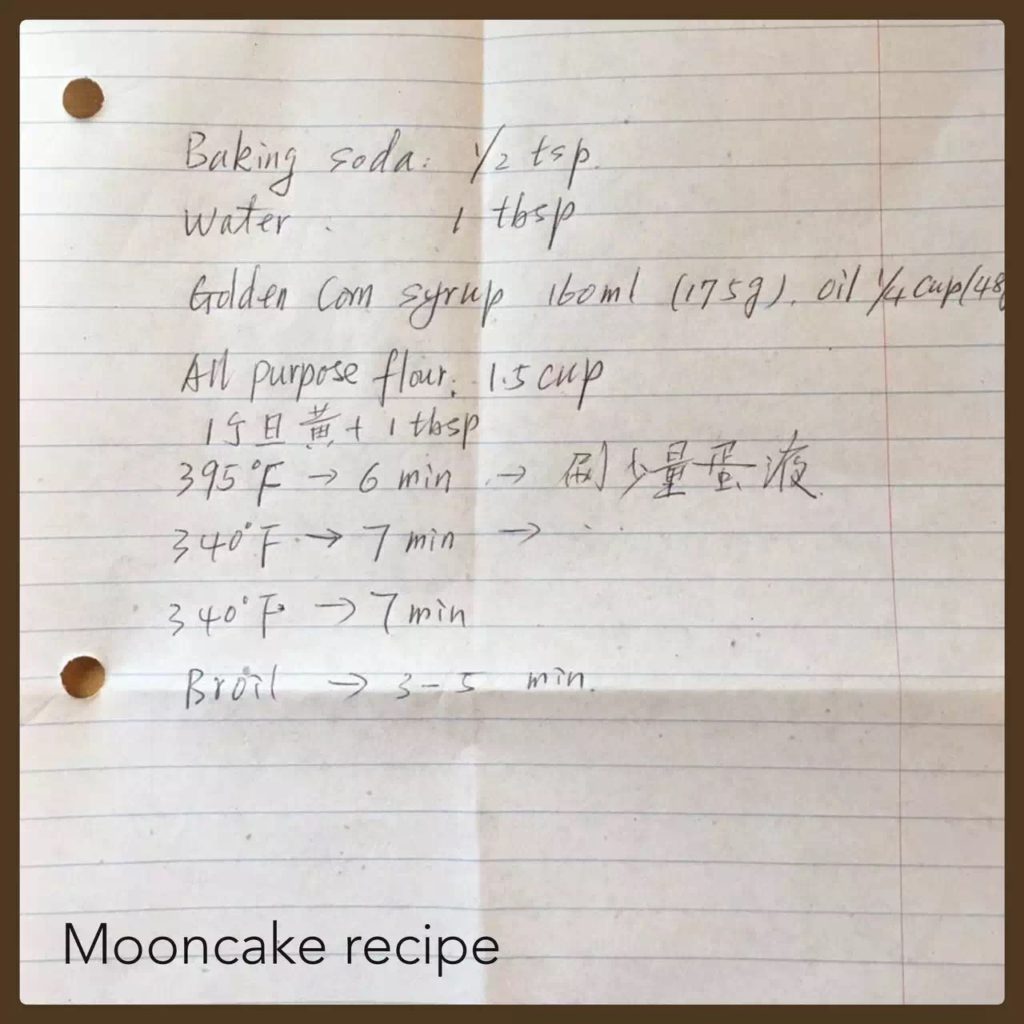 Baking soda: 1/2 tsp.
Water : 1 tbsp
Golden Corn syrup 160ml (175g). oil 1/4 cup(48g
All purpose flour: 1.5 cup
1个旦黄 + 1 tbsp
395°F → 6 min → 刷少量蛋液.
340°F → 7 min → ...
340°F → 7 min
Broil → 3-5 min.
Mooncake recipe